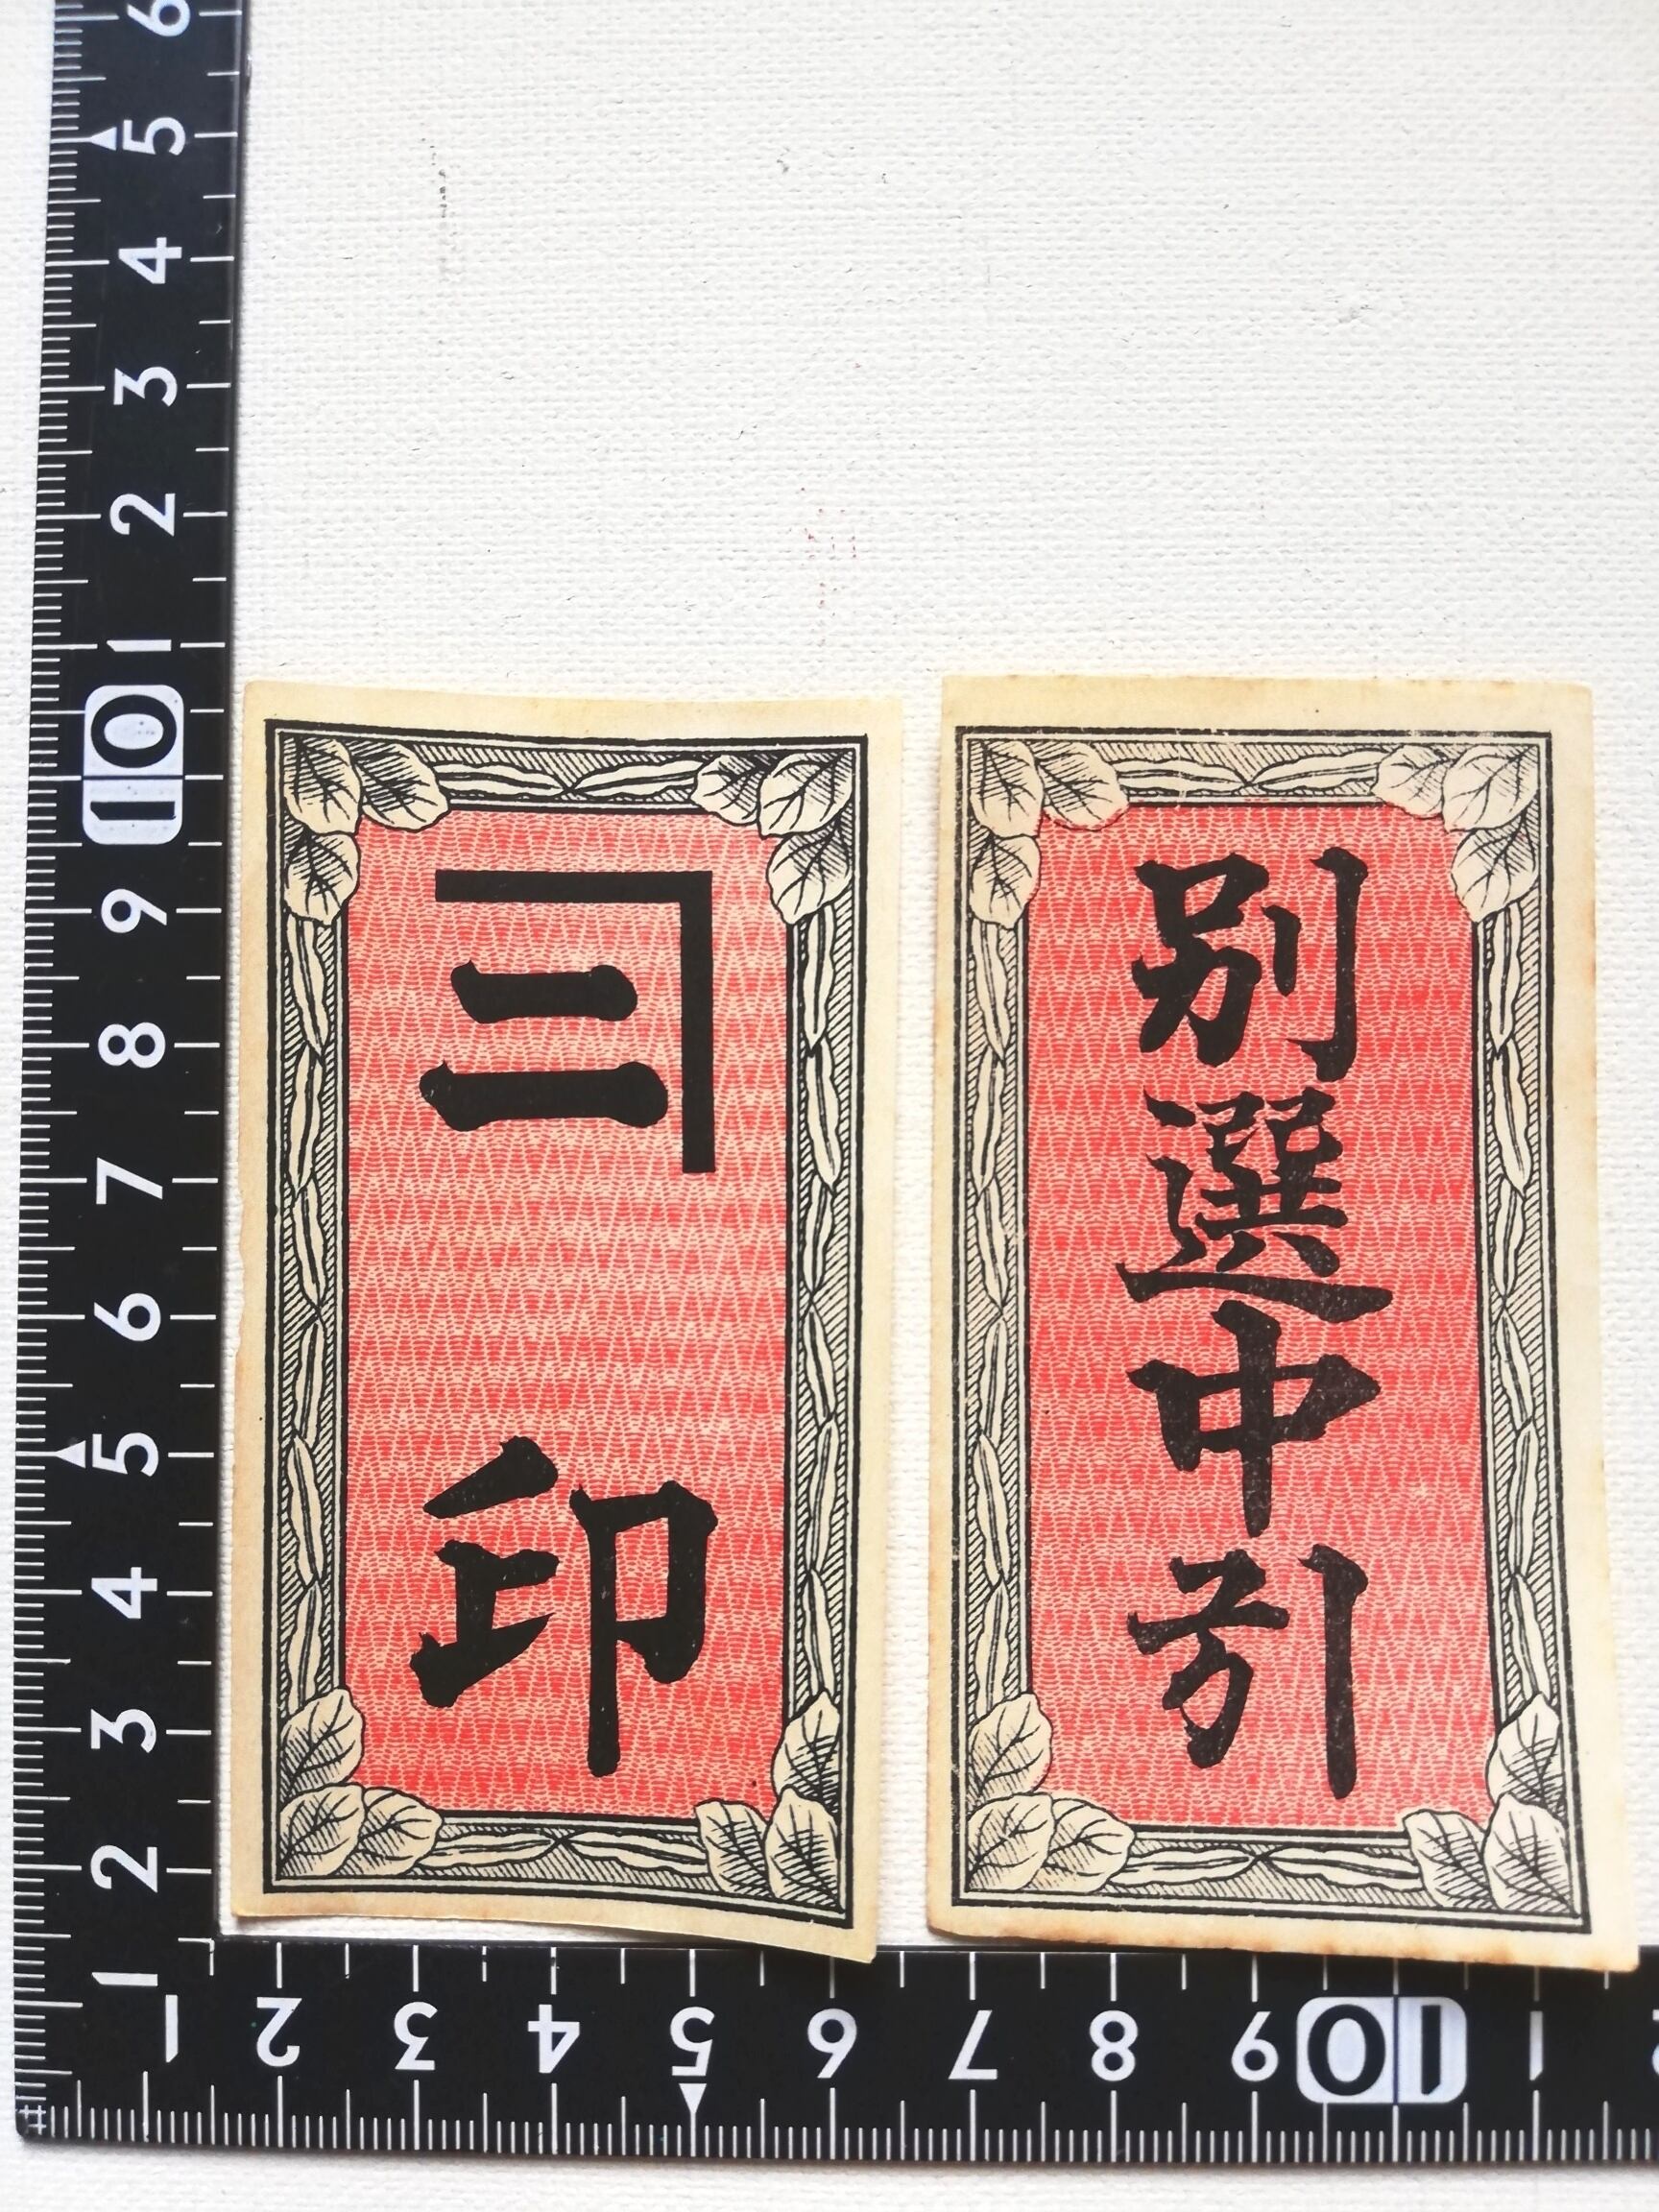 二印
別選中引
6
5
4
3
2
1
10
9
8
7
6
5
4
3
2
1
1 2 3 4 5 6 7 8 9 10 1